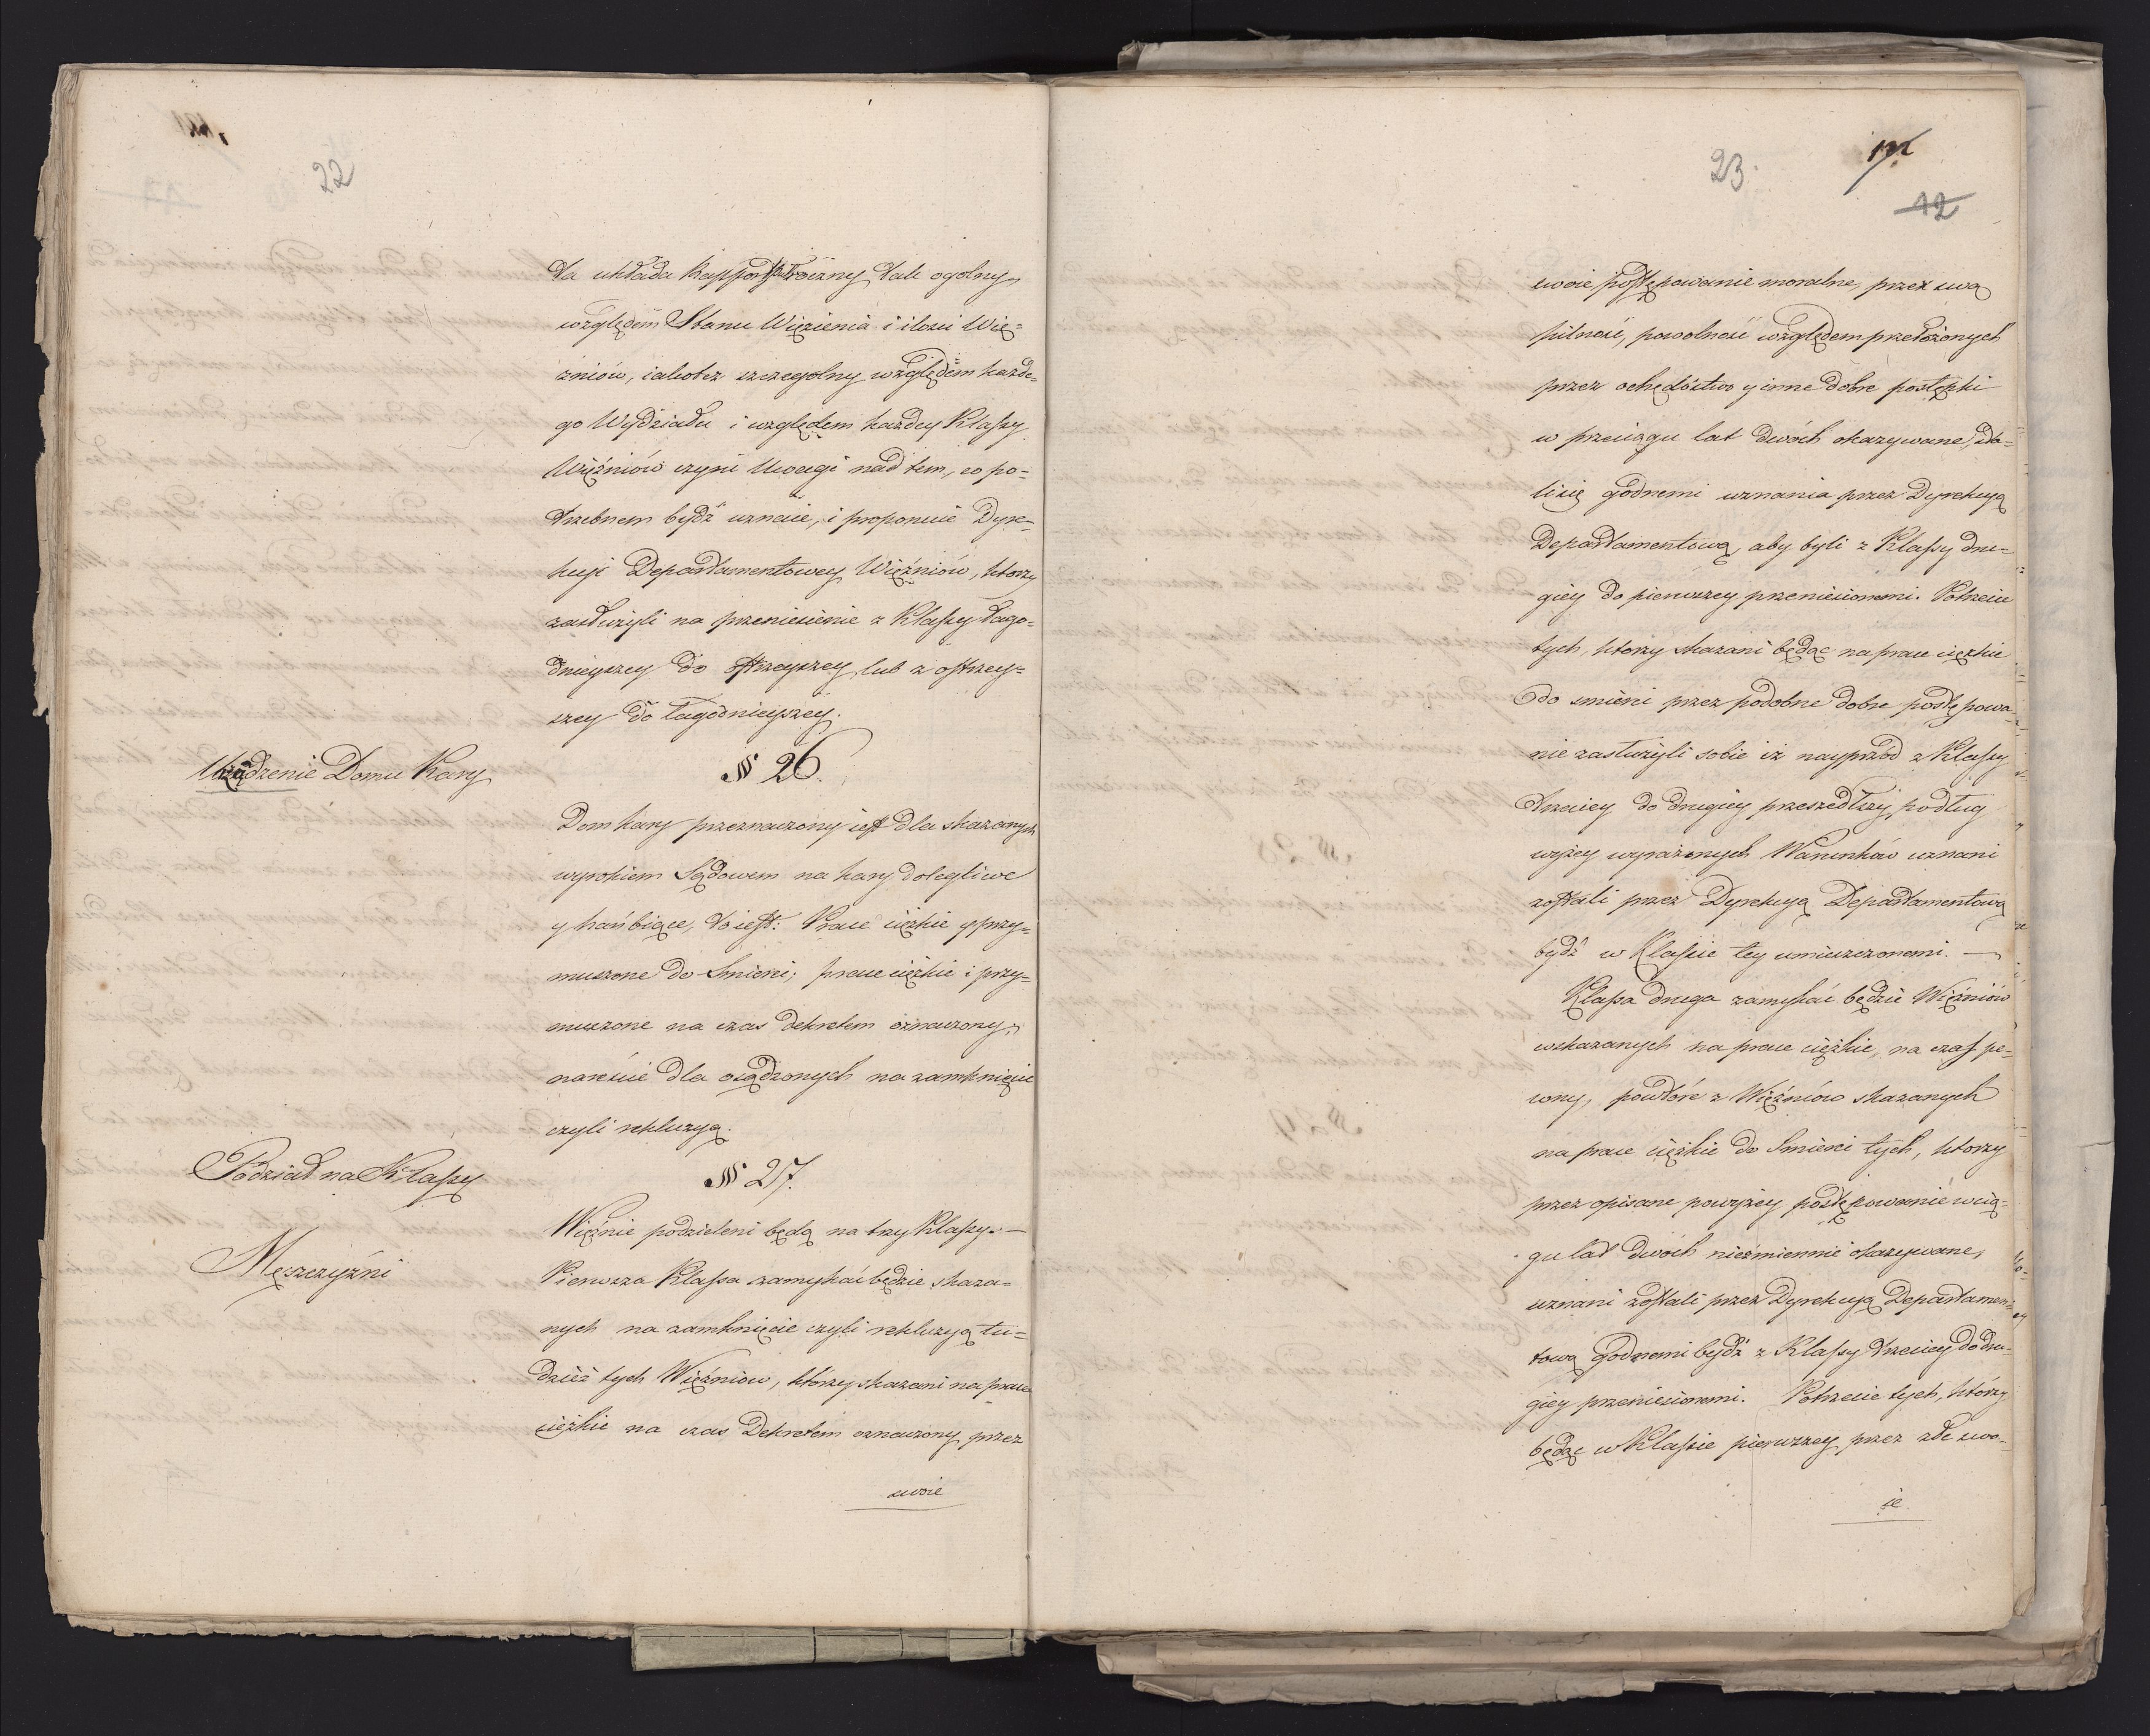 22
ta układa Rapport półroczny tak ogolny
względem Stanu Więzienia i ilosci Wię=
źniów, iakotez szczegolny względem każde=
go Wydziału i względem każdey Klassy
Więźniów czyni Uwagi nad tem, co po=
trzebnem bydź uznaie, i proponuie Dyre=
kcji Departamentowey Więźniów, ktorzy
zasłużyli na przeniesienie z Klassy łago=
dnieyszey do ostrzeyszey lub z ostrzey=
szey do łagodnieyszey.
Urządzenie Domu Kary
§ 26.
Dom kary przeznaczony iest dla skazanych
wyrokiem Sądowem na kary dolegliwe
y hańbiące, to iest: Prace ciężkie y przy=
muszone do Smierci; prace ciężkie i przy=
muszone na czas dekretem oznaczony,
nareście dla osądzonych na zamknięcie
czyli rekluzyą.
Podział na Klassy
§ 27.
Więźnie podzieleni będą na trzy Klassy. —
Męszczyźni
Pierwsza Klassa zamykać będzie skaza=
nych na zamknięcie czyli rekluzyą tu=
dzież tych Więźniow, którzy skazani na prace
ciężkie na czas Dekretem oznaczony przez
swoie
23.
12
swoie postępowanie moralne, przez swą
pilność, powolność względem przełożonych
przez ochędóstwo y inne dobre postępki
w przeciągu lat dwóch okazywane, sta=
li się godnemi uznania przez Dyrekcyą
Departamentową, aby byli z Klassy dru=
giey do pierwszey przeniesionemi. Potrzecie
tych, ktorzy skazani będąc na prace ciężkie
do smierci przez podobne dobre postępowa=
nie zasłużyli sobie iż nayprzod z Klassy
trzeciey do drugiey przeszedłszy, podług
wyżey wyrażonych Warunków uznani
zostali przez Dyrekcyą Departamentową
bydź w Klassie tey umieszczonemi. —
Klassa druga zamykać będzie Więźniów
wskazanych na prace ciężkie, na czas pe=
wny, powtóre z Więźniów skazanych
na prace ciężkie do Smierci tych, ktorzy
przez opisane powyżey postępowanie wcią=
gu lat dwóch nieżmiennie okazywane,
uznani zostali przez Dyrekcyą Departamen=
tową godnemi bydź z Klassy trzeciey do dru=
giey przeniesionemi. Potrzecie tych, którzy
będąc w Klassie pierwszey przez złe swo=
ie